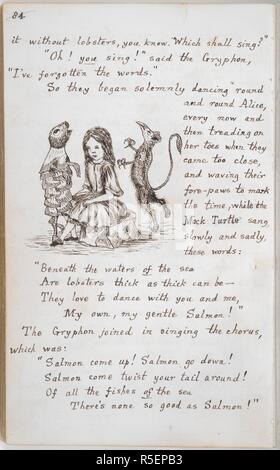 84
it without lobsters, you know. Which shall sing?"
"Oh! you sing!" said the Gryphon,
"I've forgotten the words."
So they began solemnly dancing round
and round Alice,
every now and
then treading on
her toes when they
came too close,
and waving their
fore-paws to mark
the time, while the
Mock Turtle sang
slowly and sadly,
these words:
"Beneath the waters of the sea
Are lobsters thick as thick can be—
They love to dance with you and me,
My own, my gentle Salmon!"
The Gryphon joined in singing the chorus,
which was:
"Salmon come up! Salmon go down!
Salmon come twist your tail around!
Of all the fishes of the sea
There's none so good as Salmon!"
alamy
Image ID: R5EPB3
www.alamy.com